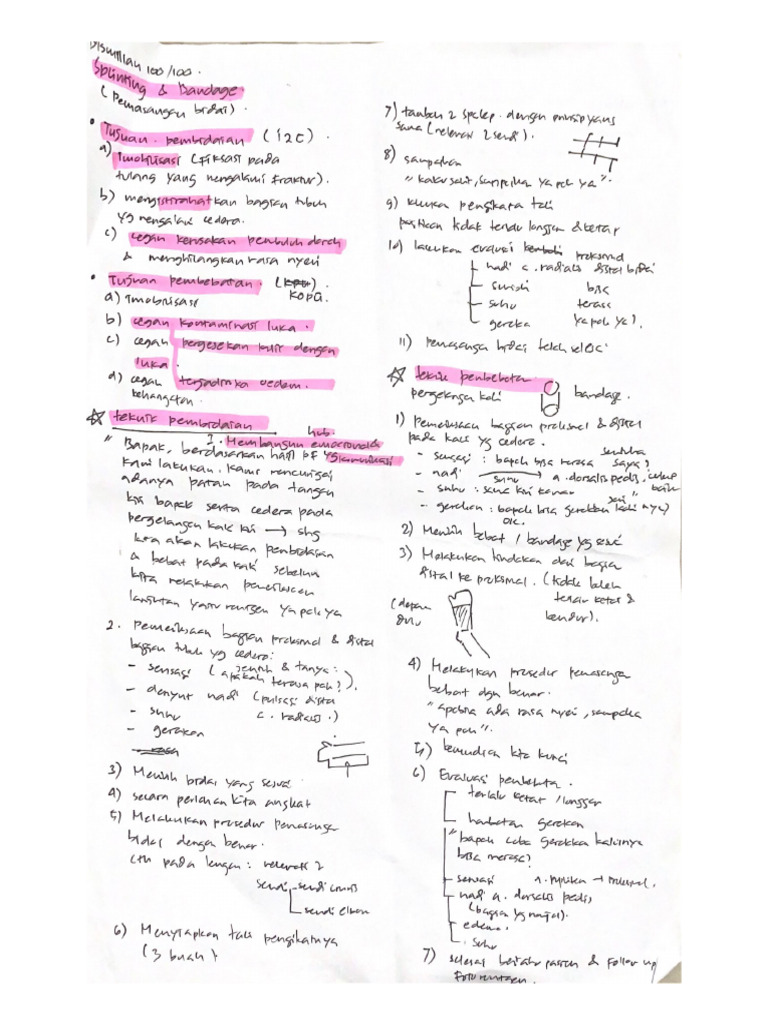 100/100.
Splinting & Bandage.
(Pemasangan bidai).
• Tujuan pembidaian (i2C)
a) Imobilisasi (fiksasi pada
tulang yang mengalami fraktur).
b) mengistirahatkan bagian tubuh
yg mengalami cedera.
c) cegah kerusakan pembuluh darah
& menghilangkan rasa nyeri
• Tujuan pembebatan.
a) Imobilisasi
b) cegah kontaminasi luka.
c) cegah pergesekan kulit dengan
luka.
d) cegah terjadinya oedem.
kehangatan.
☆ teknik pembidaian
hub.
? Membangun
"Bapak, berdasarkan hasil PF yg
kami lakukan. Kami mencurigai
adanya patah pada tangan
kiri bapak serta cedera pada
pergelangan kaki kiri → shg
kita akan lakukan pembidaian
& bebat pada kaki sebelum
kita melakukan pemeriksaan
lanjutan yaitu rontgen ya pak ya
2. Pemeriksaan bagian proksimal & distal
bagian tubuh yg cedera:
- sensasi (sentuh & tanya:
apakah terasa pak?).
- denyut nadi (pulsasi distal
a. radialis.)
- suhu
- gerakan
3) Memilih bidai yang sesuai
4) secara perlahan kita angkat
5) Melakukan prosedur pemasangan
bidai dengan benar.
cth pada lengan: melewati 2
sendi - sendi wrist
sendi elbow
6) Menyiapkan tali pengikatnya
(3 buah)
7) tambah 2 spalep. dengan prinsip yang
sama (melewati 2 sendi).
8) sampaikan
"kalau sakit, sampaikan ya pak ya".
9) kemudian pengikatan tali
pastikan tidak terlalu longgar & ketat
10) lakukan evaluasi proksimal
nadi a. radialis distal bidai
sensasi bisa
suhu terasa
gerakan ya pak ya)
11) Pemasangan bidai telah selesai
☆ teknik pembebatan
pergelangan kaki bandage.
1) Pemeriksaan bagian proksimal & distal
pada kaki yg cedera.
- sensasi: bapak bisa merasa sentuhan
saya?
- nadi → a. dorsalis pedis,
suhu
- suhu: sama kiri kanan
- gerakan: bapak bisa gerakkan kaki nya)
2) Memilih bebat / bandage yg sesuai
3) Melakukan tindakan dari bagian
distal ke proksimal. (tidak boleh
terlalu ketat &
kendur).
4) Melakukan prosedur pemasangan
bebat dgn benar.
"apabila ada rasa nyeri, sampaikan
ya pak".
5) kemudian kita kunci
6) Evaluasi pembebatan.
terlalu ketat / longgar
hambatan gerakan
"bapak coba gerakkan kakinya
bisa merasa?
sensasi
nadi a. dorsalis pedis
edema.
suhu
7) selesai & follow up
foto rontgen.